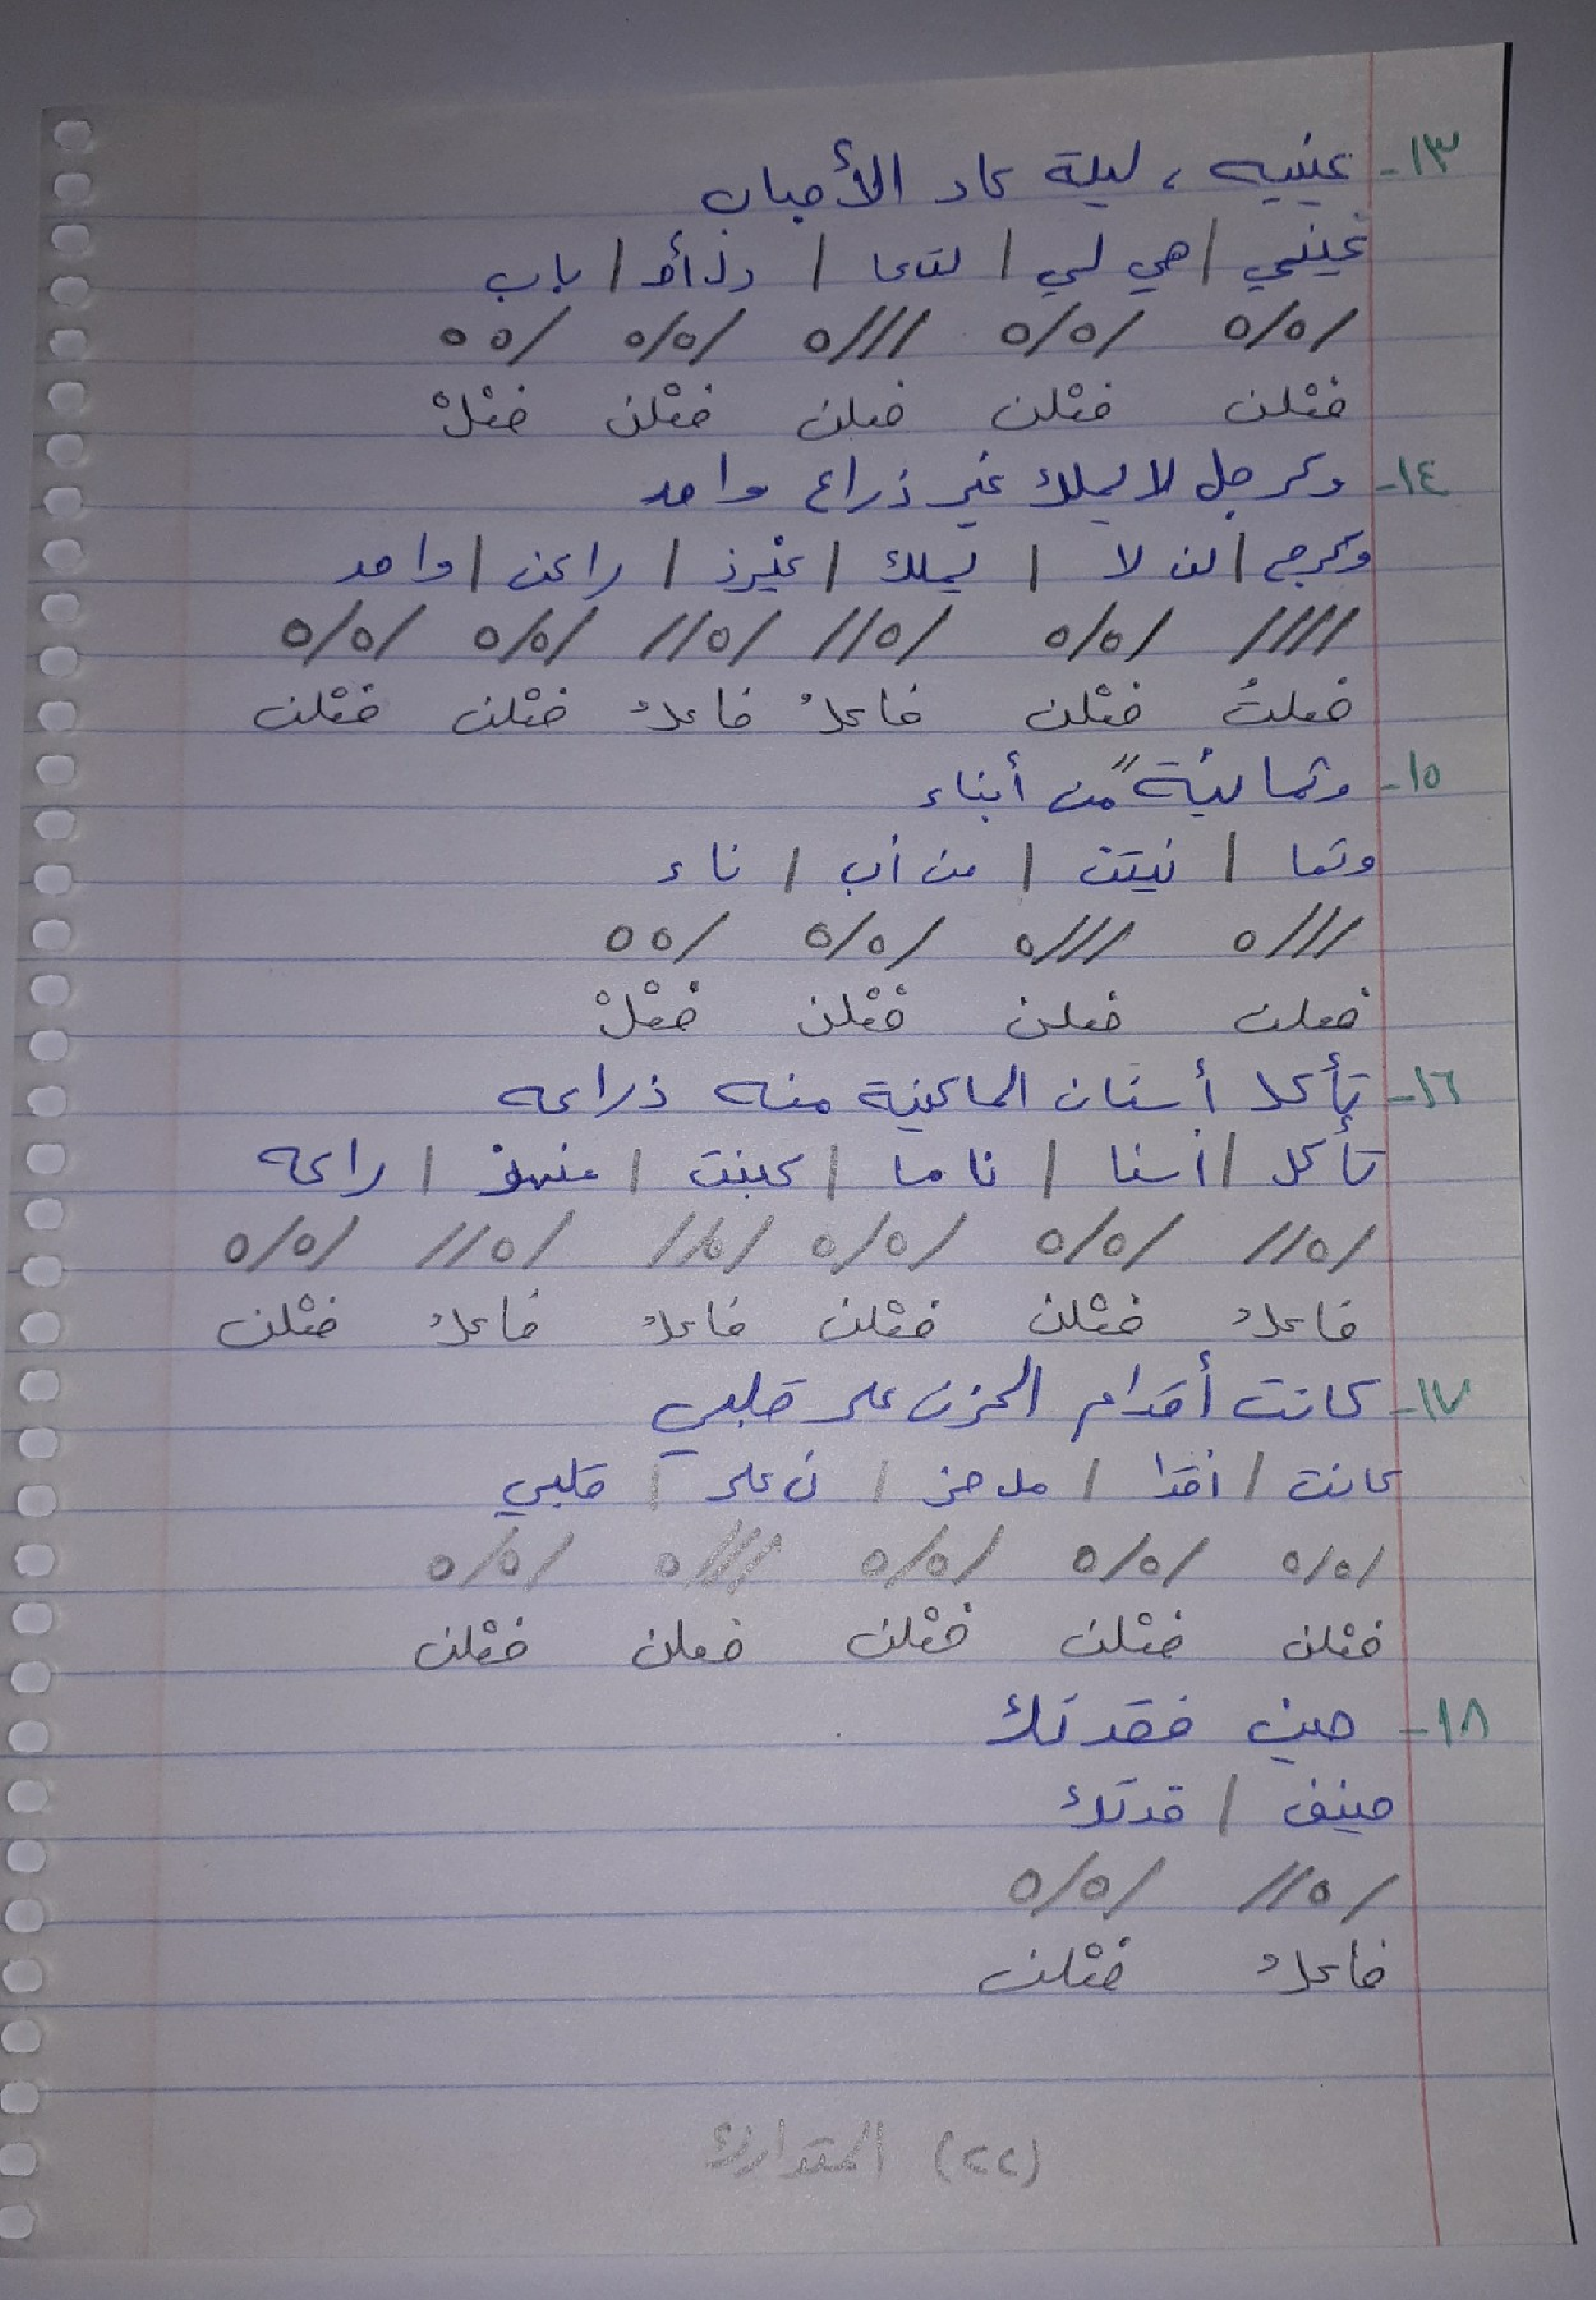 ١٣- عينيه ، ليلة عاد الأحباب
عيني / هي لي / لتعا / دلأح / باب
/٥/٥ /٥/٥ ///٥ /٥/٥ /٥٥
فعْلن فعْلن فعلن فعْلن فعْلْ
١٤- وكرجل لا يملك غير ذراع واحد
وكرج / لن لا / يملك / غيرذ / راعن / واحد
//// /٥/٥ /٥// /٥// /٥/٥ /٥/٥
فعلتُ فعْلن فاعلُ فاعلُ فعْلن فعْلن
١٥- وثمانيةً من أبناء
وثما / نيتن / من أب / ناء
///٥ ///٥ /٥/٥ /٥٥
فعلن فعلن فعْلن فعْلْ
١٦- تأكل أسنان الماكينة منه ذراعه
تأكل / أسنا / نا ما / كينت / منهذ / راعه
/٥// /٥/٥ /٥/٥ /٥// /٥// /٥/٥
فاعلُ فعْلن فعْلن فاعلُ فاعلُ فعْلن
١٧- كانت أقدام الحزن على قلبي
كانت / أقدا / مل حز / ن على / قلبي
/٥/٥ /٥/٥ /٥/٥ ///٥ /٥/٥
فعْلن فعْلن فعْلن فعلن فعْلن
١٨- حين فقدتك
حينف / قدتك
/٥// /٥/٥
فاعلُ فعْلن
(٢٢) المتدارك